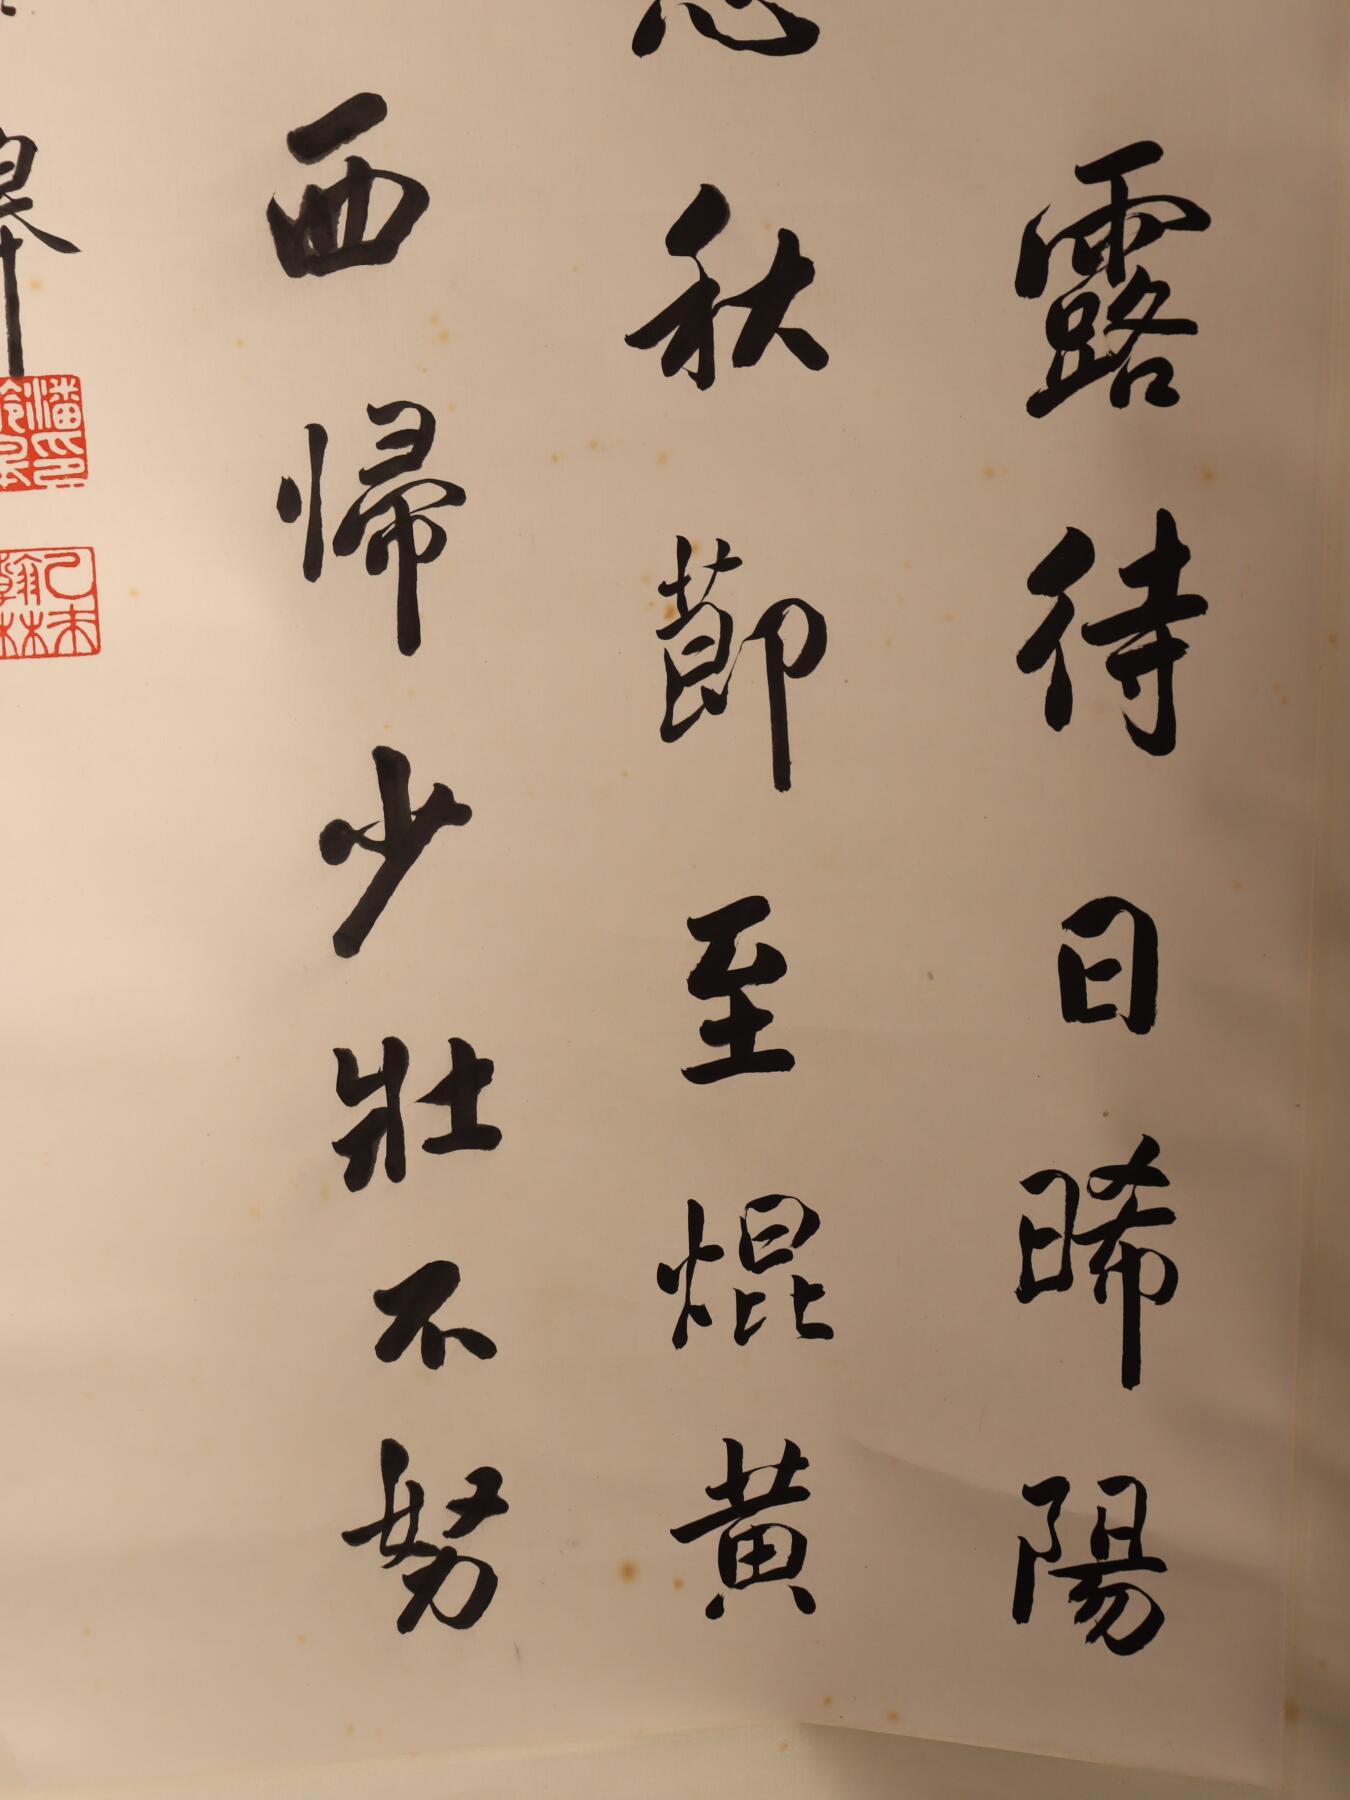 露待日晞陽
秋節至焜黃
西歸少壯不努
皋
潘印齡皋
乙未翰林